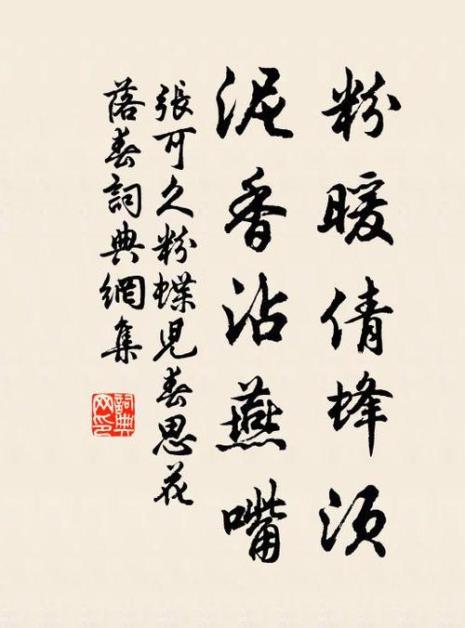 粉暖倩蜂须
泥香沾燕嘴
張可久粉蝶兒春思花
落春詞典網集
詞典网印